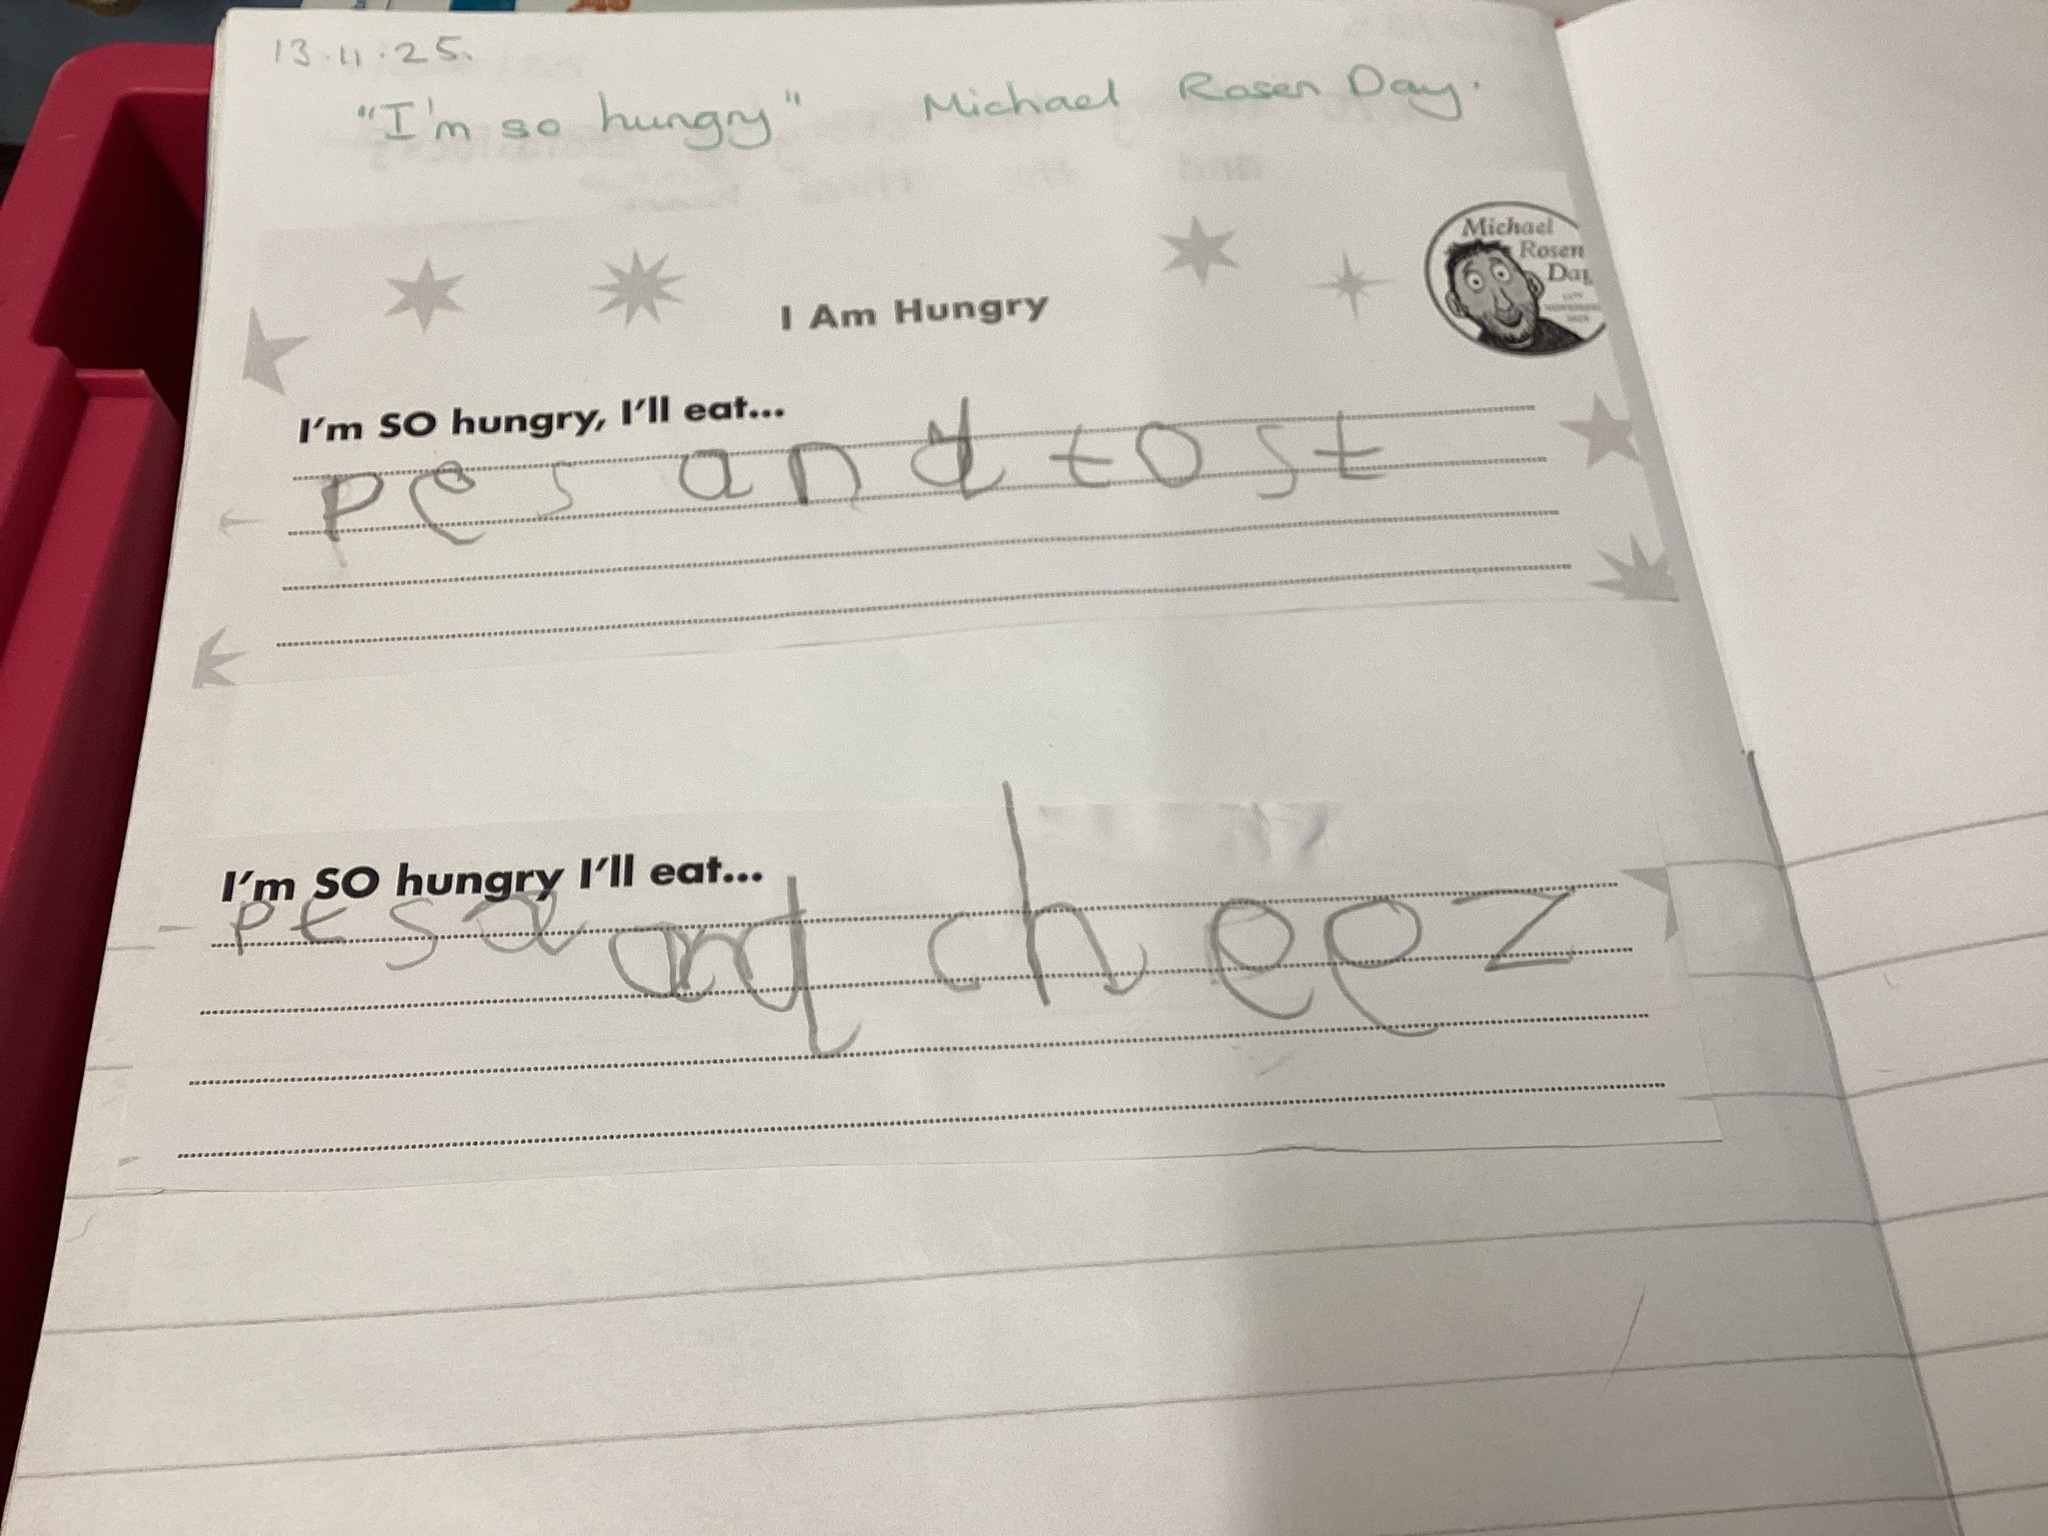 13.11.25.
"I'm so hungry" Michael Rosen Day.
Michael
Rosen
Day
I Am Hungry
I'm SO hungry, I'll eat...
pes and tost
I'm SO hungry I'll eat...
pesa and cheez